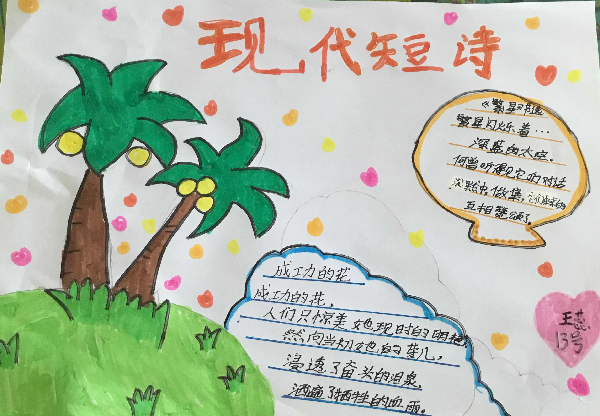 现代短诗
《繁星》节选
繁星闪烁着…
深蓝的太空,
何曾听得见它们对话
沉默中,微光里,它们深深的
互相赞颂了
成功的花
成功的花,
人们只惊羡她现时的明艳
然而当初她的芽儿,
浸透了奋斗的泪泉,
洒遍了牺牲的血雨
13号